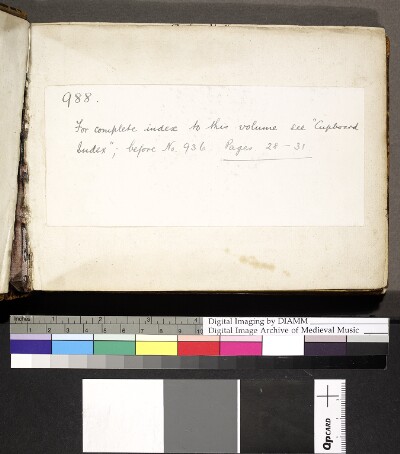 988.
For complete index to this volume see "Cupboard
Index"; before No. 936. Pages 28-31
inches 1 2 3
Digital Imaging by DIAMM
Digital Image Archive of Medieval Music
1 2 3 4 5 6 7 8 9 10
QPCARD